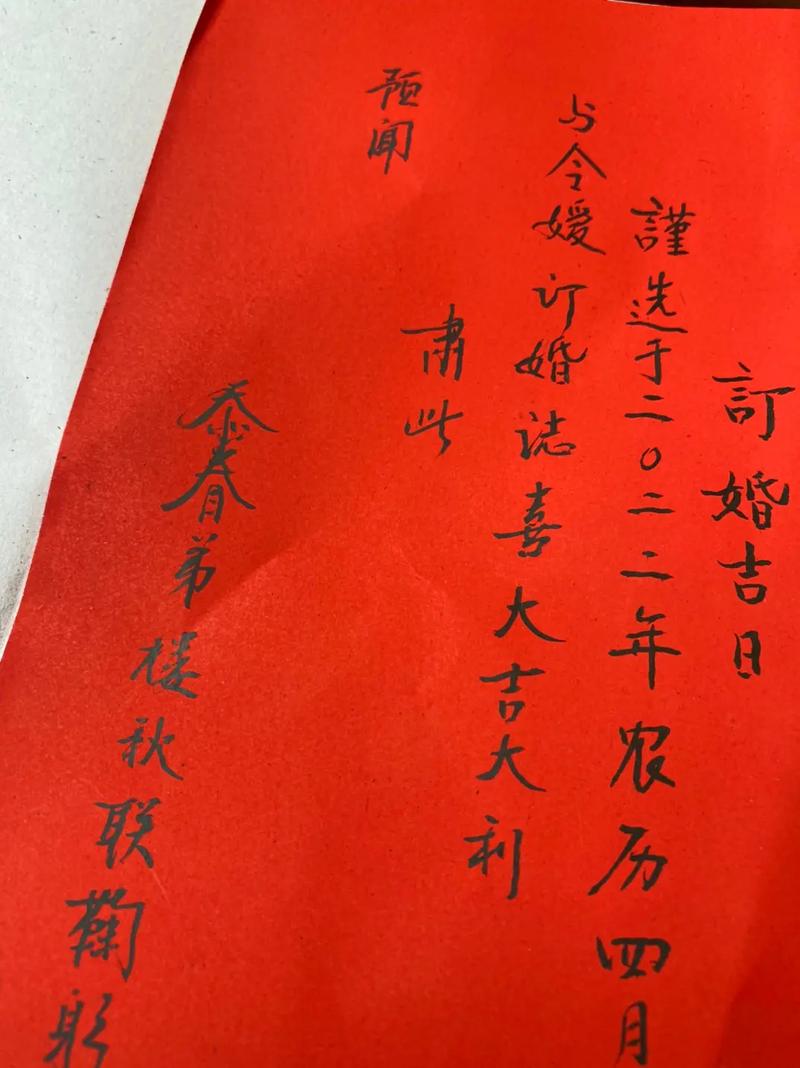 訂婚吉日
謹选于二〇二二年农历四月
与令嫒订婚誌喜大吉大利
肃此
预闻
忝眷弟楼秋联鞠躬